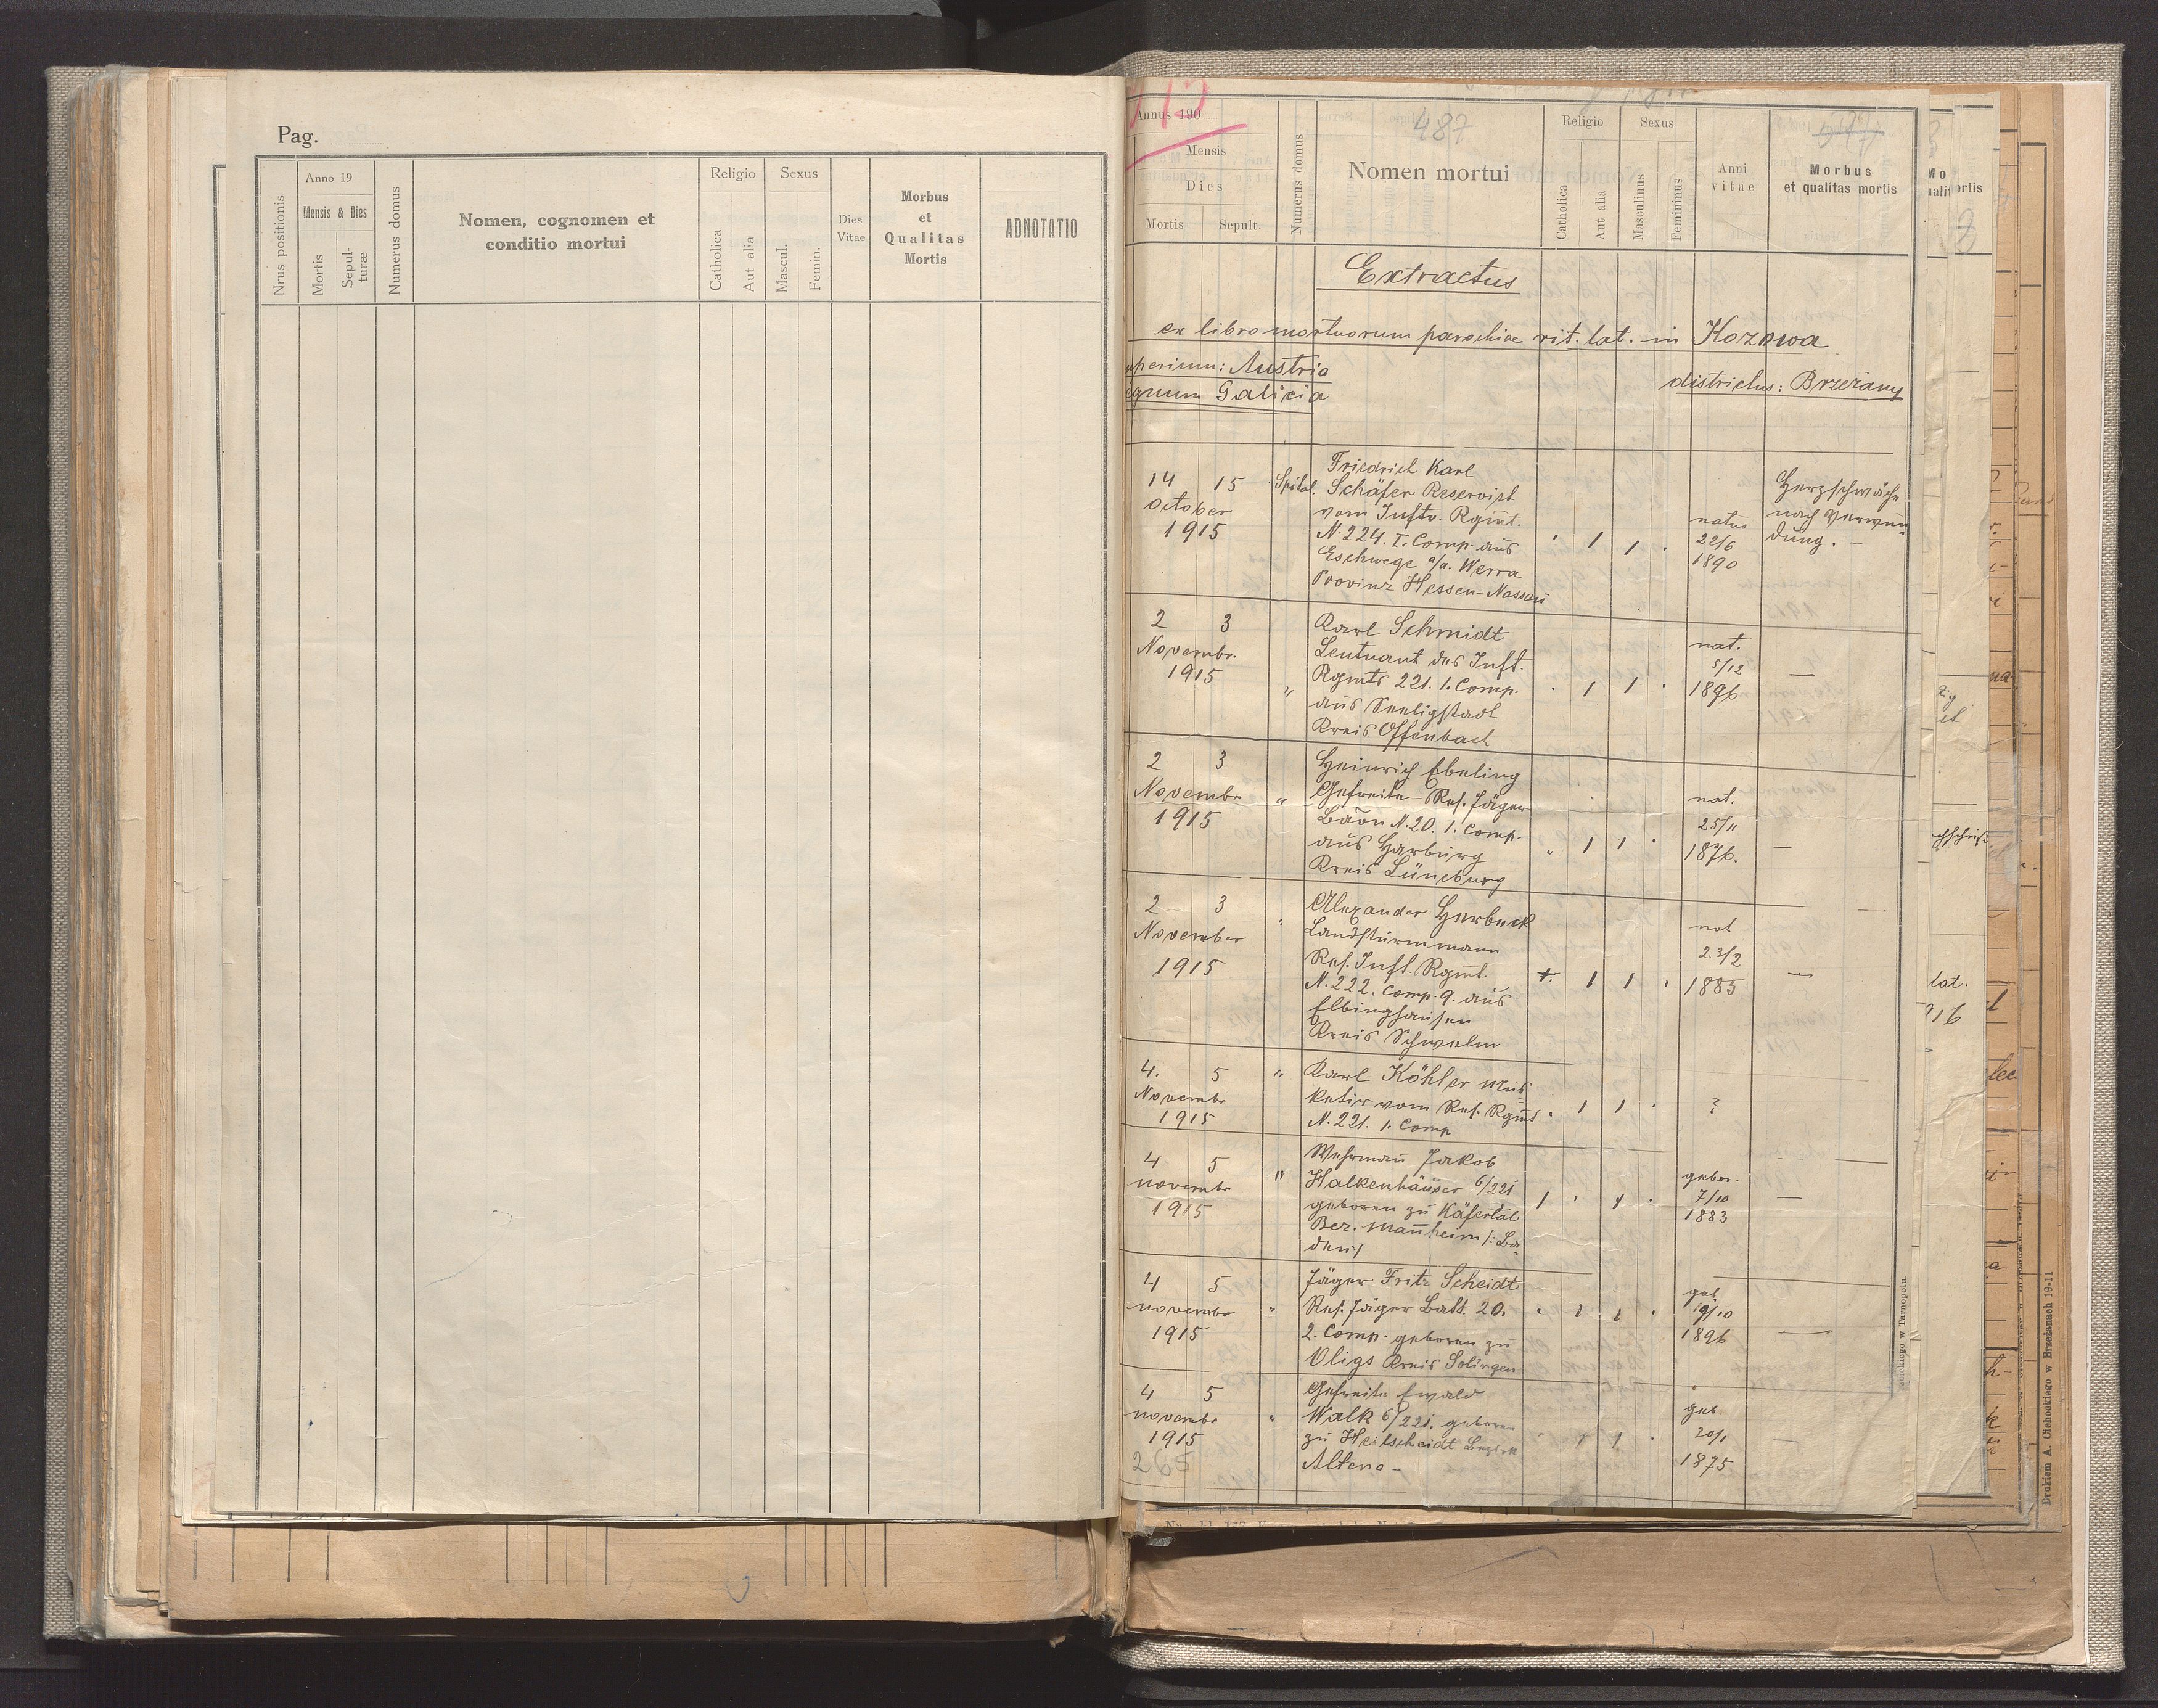 Pag.
Nrus positionis
Anno 19
Mensis & Dies
Mortis
Sepul-
turæ
Numerus domus
Nomen, cognomen et
conditio mortui
Religio
Catholica
Aut alia
Sexus
Mascul.
Femin.
Dies
Vitae
Morbus
et
Qualitas
Mortis
ADNOTATIO
Annus 190
487
Mensis
Dies
Mortis
Sepult.
Numerus domus
Nomen mortui
Religio
Catholica
Aut alia
Sexus
Masculinus
Femininus
Anni
vitae
Morbus
et qualitas mortis
Extractus
ex libro mortuorum parochiae rit. lat. in Kozowa
mperium: Austria
egnum Galicia
districtus: Brzeżany
14 15 Spital.
October
1915
Friedrich Karl
Schäfer Reservist
vom Inftr. Rgmt.
N. 224. I. Comp. aus
Eschwege a/a. Werra
Provinz Hessen-Nassau
natus
22/6
1890
Herzschwäche
nach Verwun
dung. -
2 3
Novembr.
1915 "
Karl Schmidt
Leutnant des Inft.
Rgmts 221. 1. Comp.
aus Seeligstadt
Kreis Offenbach
nat.
5/12
1896 —
2 3
Novembr "
1915
Heinrich Ebeling
Gefreite - Res. Jäger
Baon N. 20. 1. Comp.
aus Harburg
Kreis Lüneburg
nat.
25/11
1876. —
2 3 "
November
1915
Alexander Herbeck
Landsturmmann
Res. Inft. Rgmt
N. 222. Comp. 9. aus
Elbinghausen
Kreis Schwelm
nat
23/2
1885 —
4. 5 "
Novembr
1915
Karl Köhler Mus
ketir vom Res. Rgmt
N. 221. 1. Comp
?
4 5 "
novembr
1915
Wehrman Jakob
Halkenhäuser 6/221
geboren zu Käfertal
Bez. Mannheim /: Ba-
den:/
gebor.
7/10
1883 —
4 5
novembr "
1915
Jäger Fritz Scheidt
Res. Jäger Batt. 20.
2. Comp. geboren zu
Oligs Kreis Solingen
geb.
19/10
1896 —
4 5
novembr "
1915
Gefreite Ewald
Walk 6/221. geboren
zu Heilscheidt Bezirk
Altena -
geb.
20/1
1875
265
Drukiem A. Cichockiego w Brzeżanach 19-11